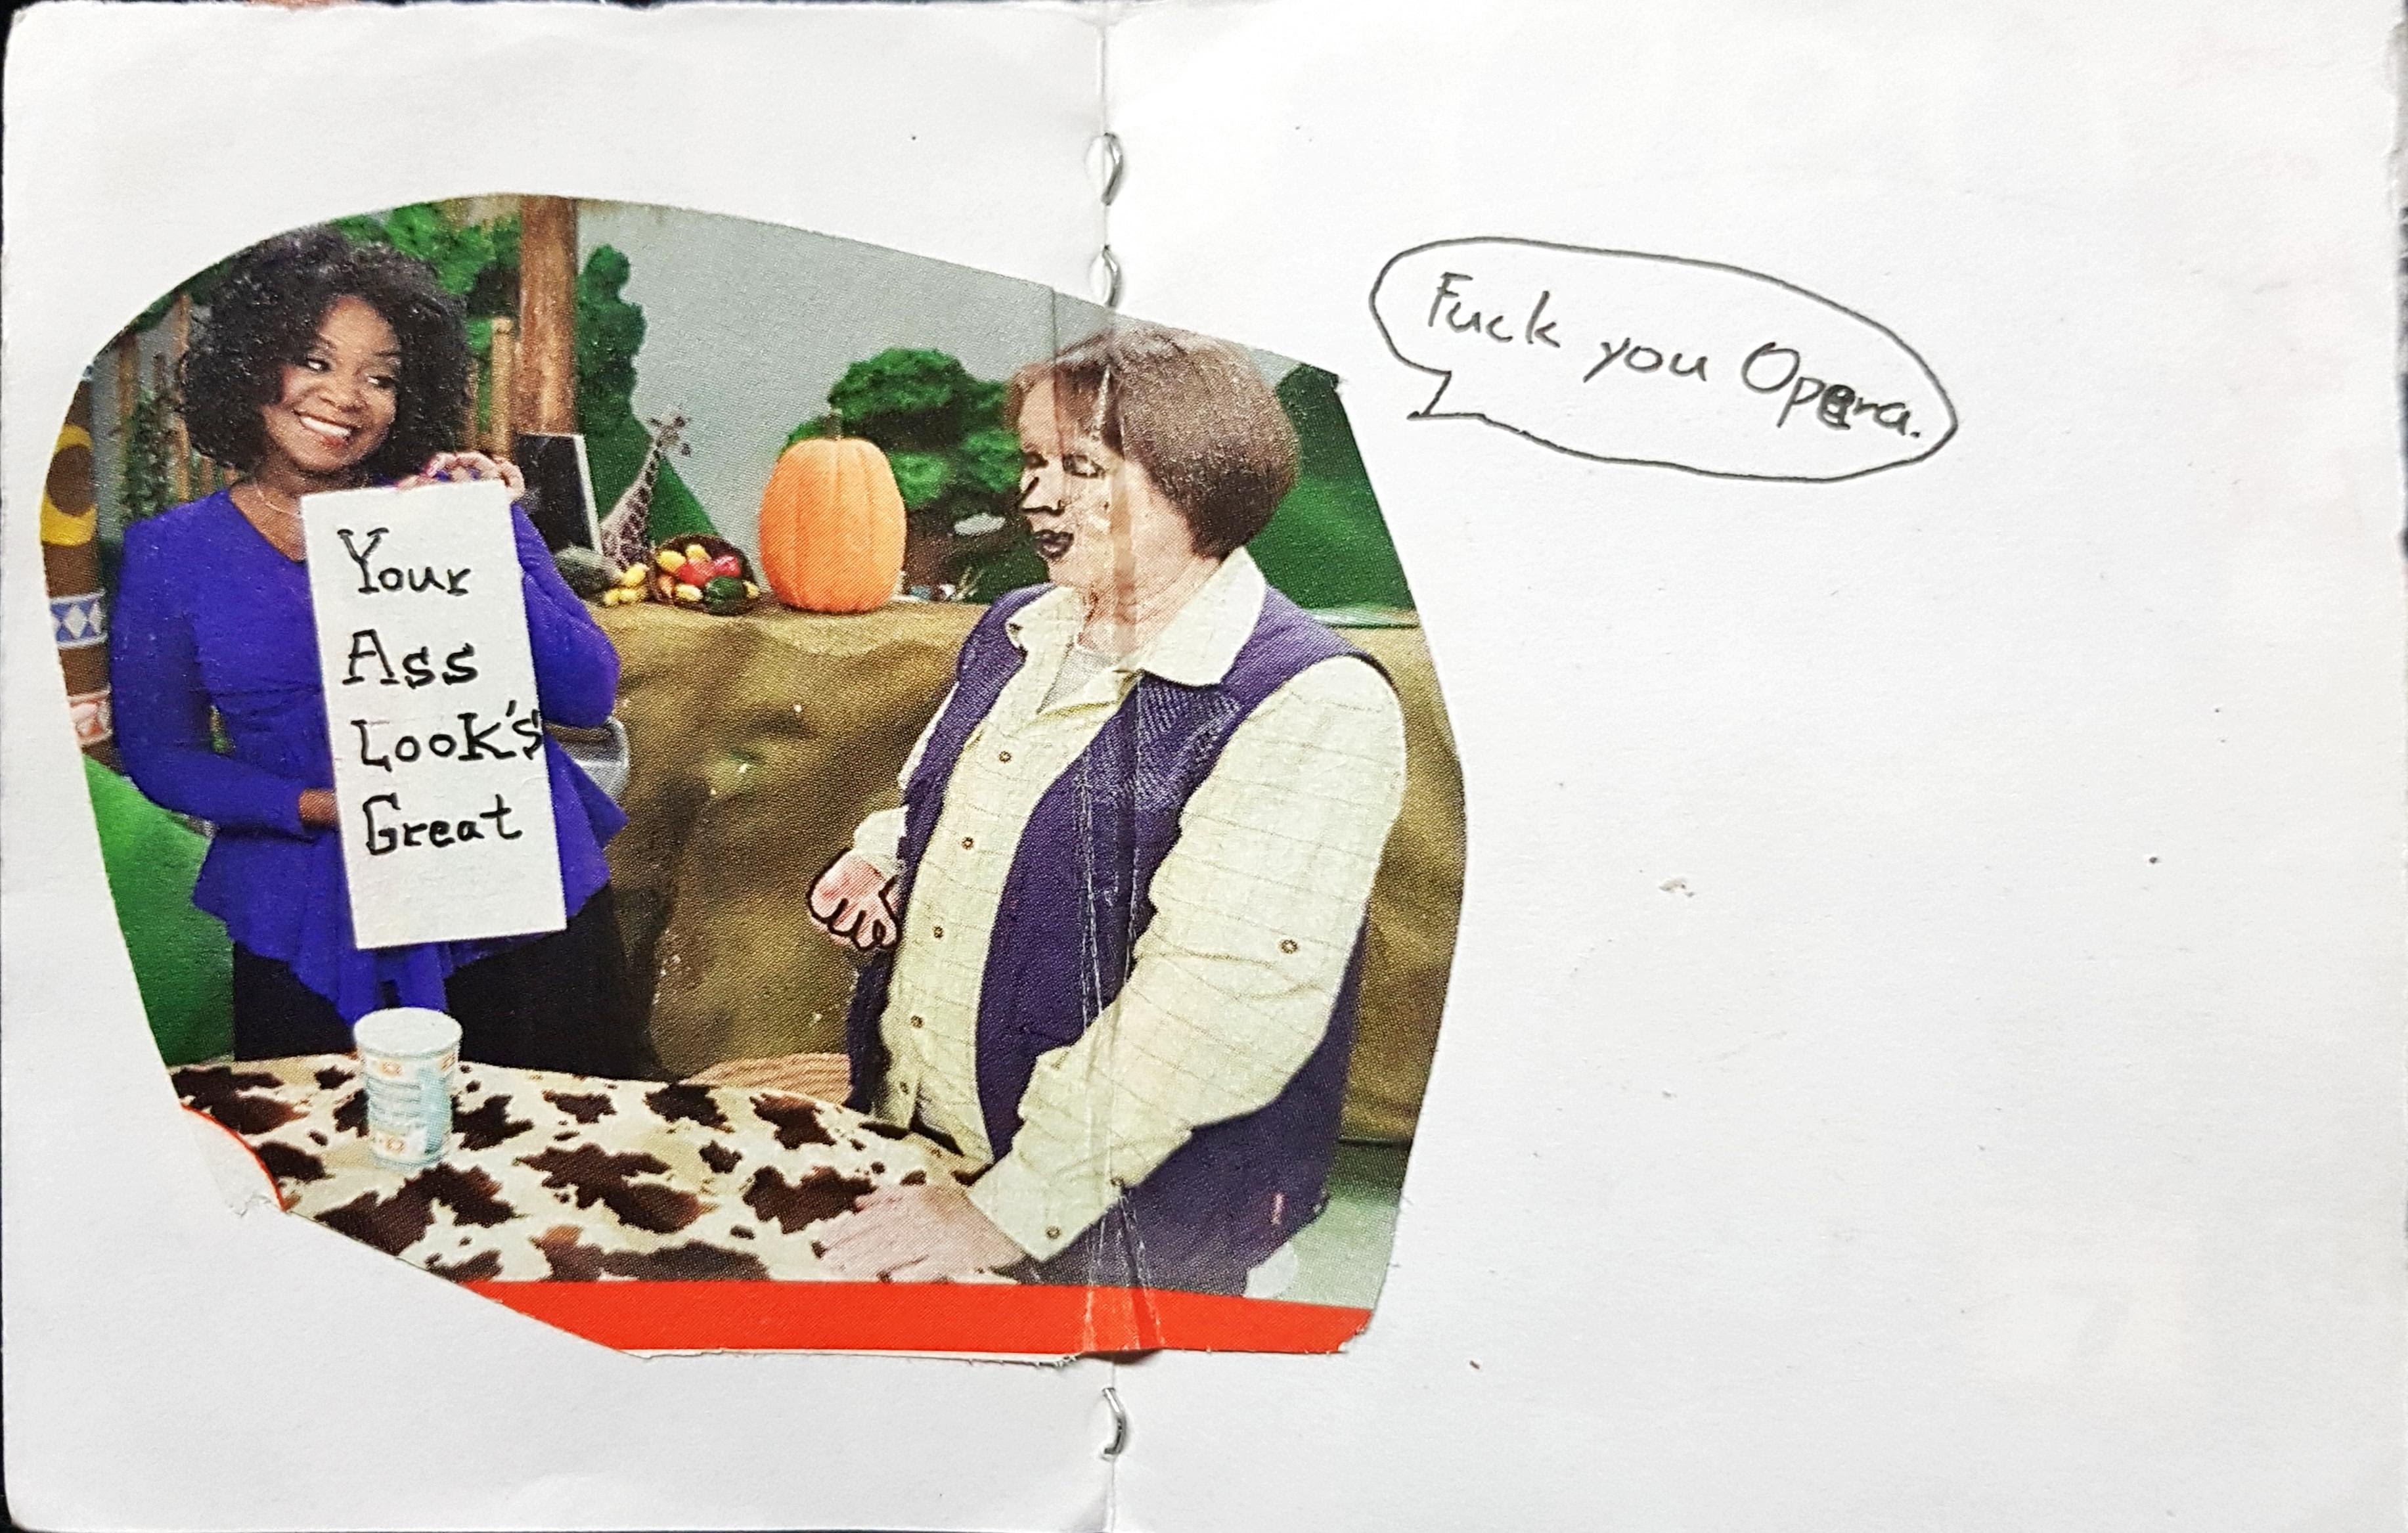 Your
Ass
Look's
Great
Fuck you Opera.